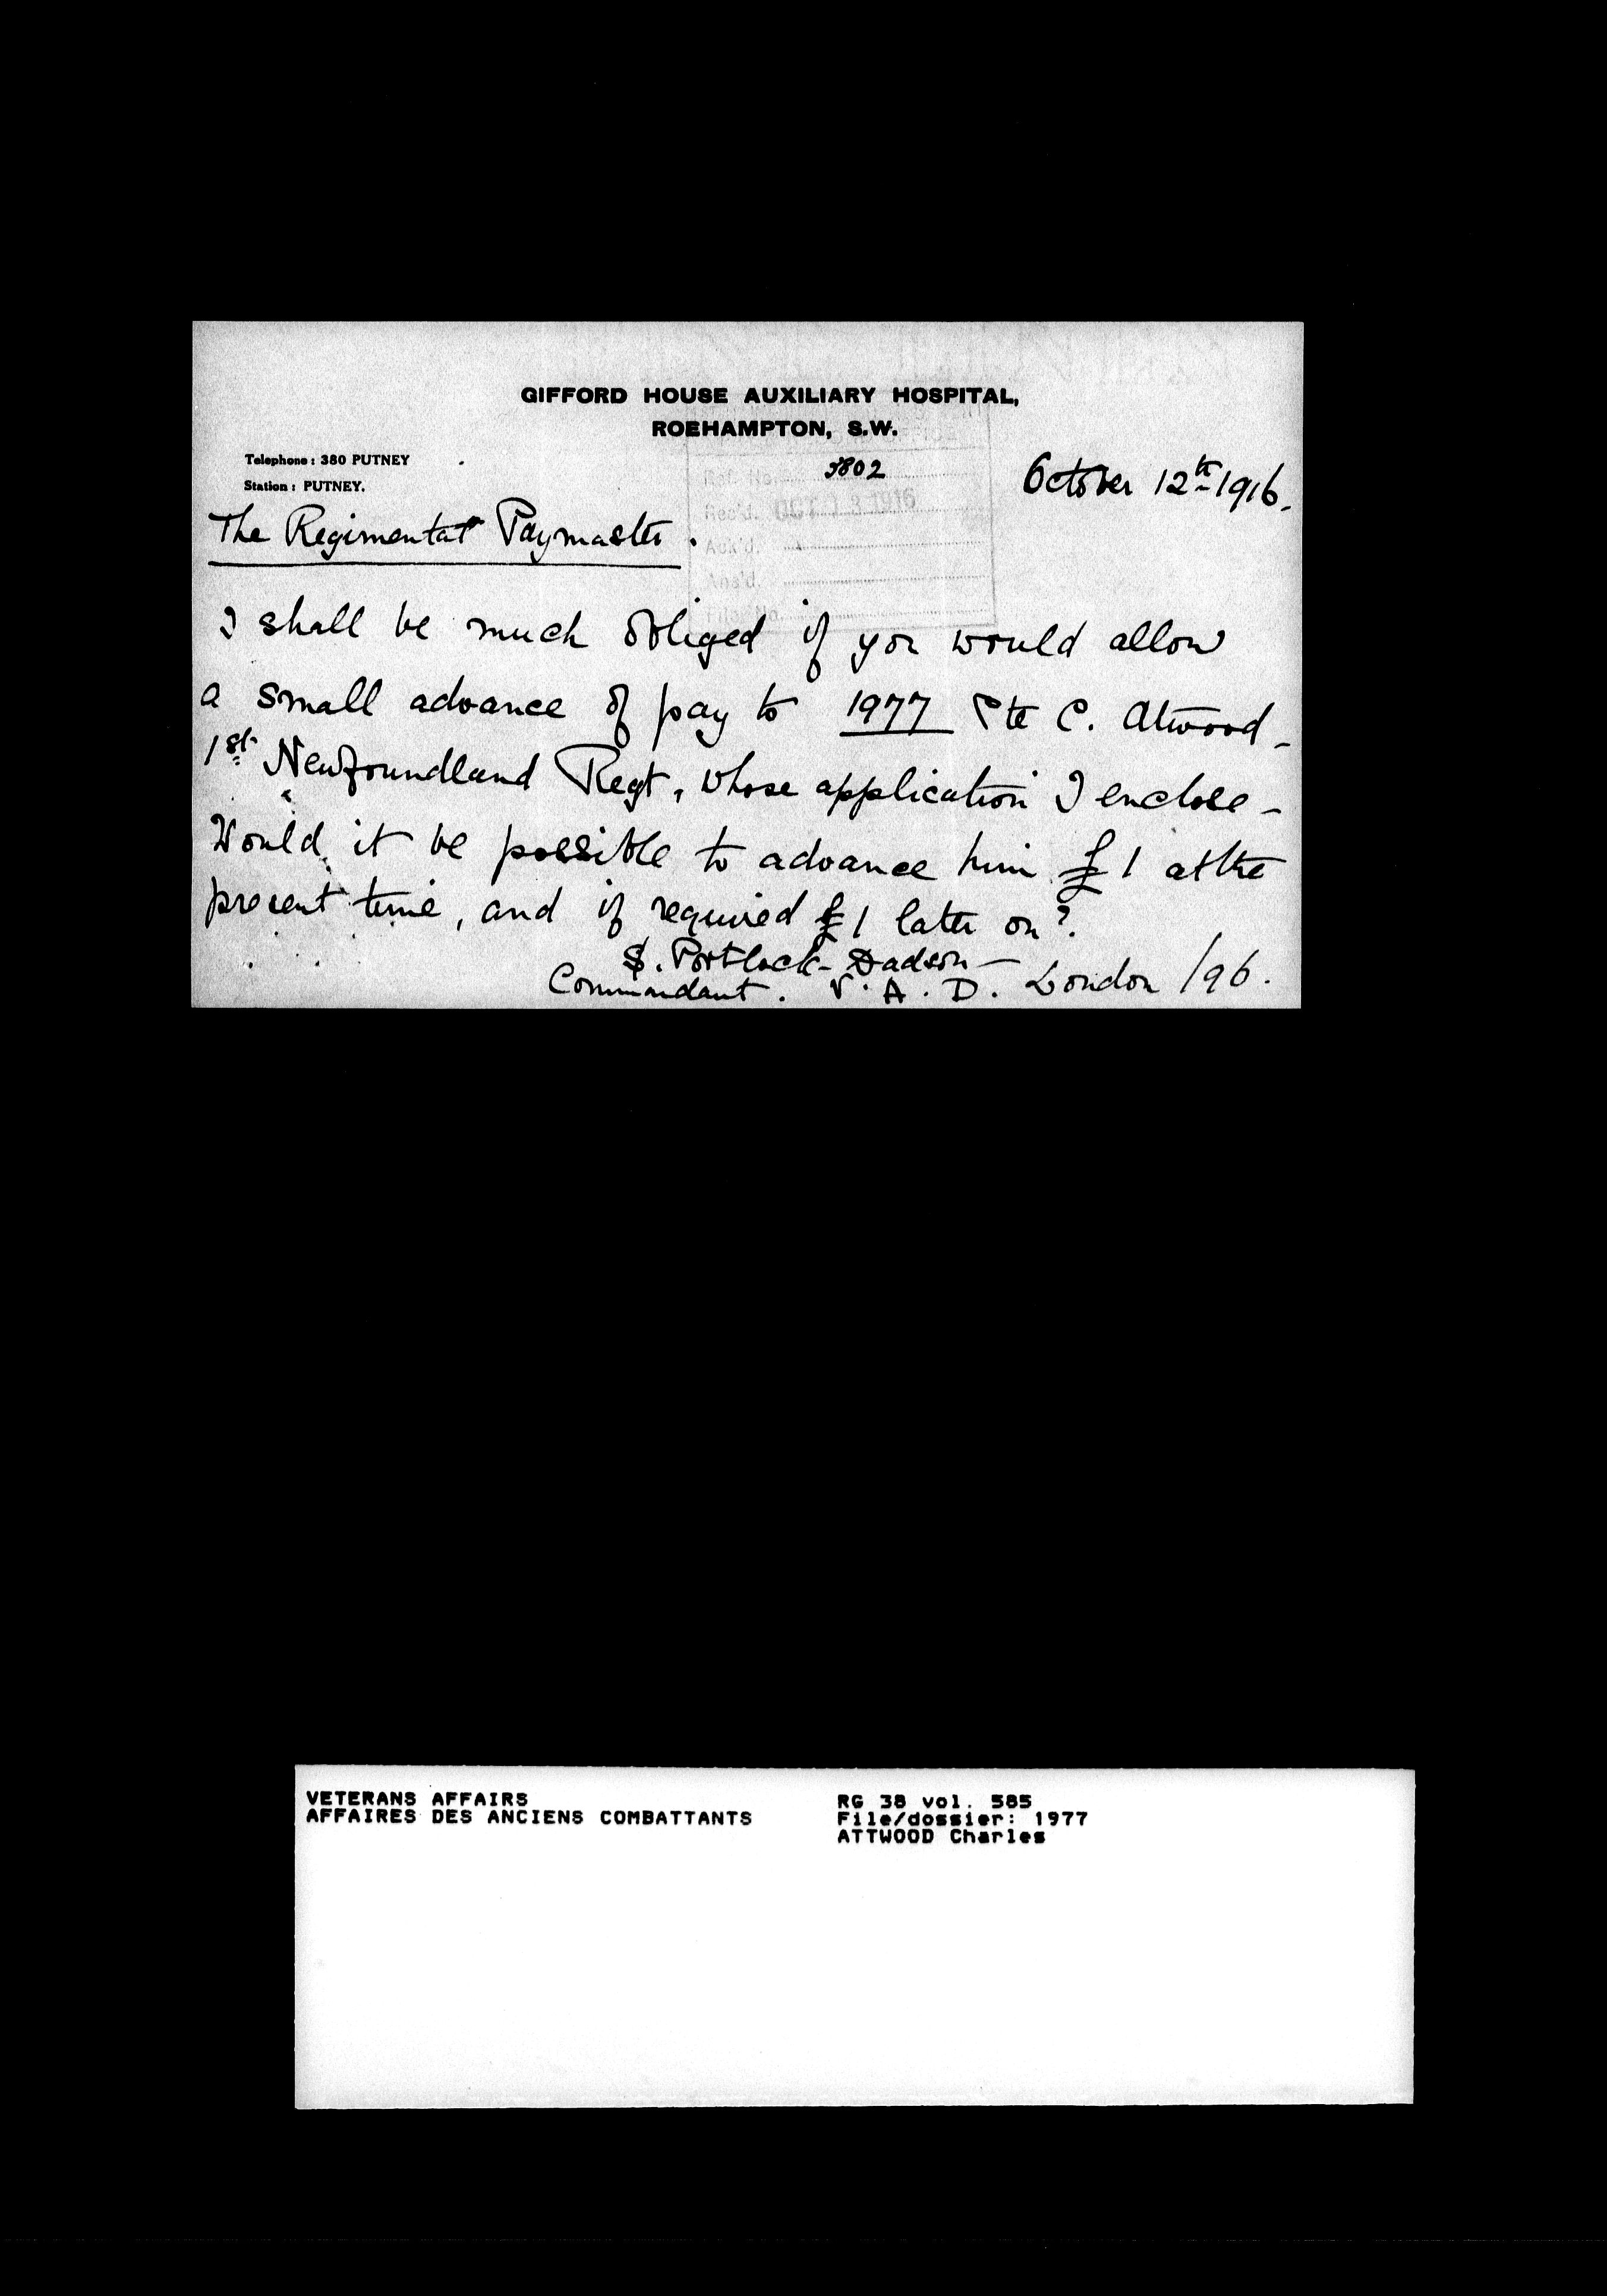 GIFFORD HOUSE AUXILIARY HOSPITAL,
ROEHAMPTON, S.W.
Telephone: 380 PUTNEY
Station: PUTNEY.
Ref. No. 3802
Rec'd. OCT 13 1916
Ack'd.
Ans'd.
File No.
October 12th 1916.
The Regimental Paymaster.
I shall be much obliged if you would allow
a small advance of pay to 1977 Pte C. Atwood -
1st Newfoundland Regt, whose application I enclose -
Would it be possible to advance him £1 at the
present time, and if required £1 later on?
S. Portlock-Dadson -
Commandant. V.A.D. London /96.
VETERANS AFFAIRS
AFFAIRES DES ANCIENS COMBATTANTS
RG 38 vol. 585
File/dossier: 1977
ATTWOOD Charles